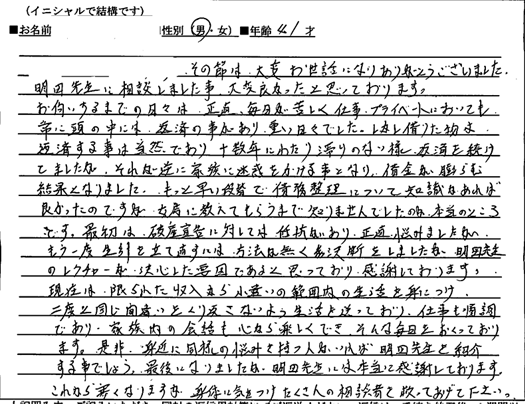 (イニシャルで結構です)
■お名前 性別(男・女)■年齢 41才
その節は、大変お世話になりありがとうございました。
明田先生に相談しました事、大変良かったと思っております。
お伺いするまでの日々は、正直、毎日が苦しく仕事、プライベートにおいても、
常に頭の中には、返済の事があり重い日々でした。しかし借りた物は、
返済する事は当然であり、十数年にわたり滞りのない様に返済を続け
てましたが、それが逆に家族に迷惑をかける事となり、借金が膨らむ
結果となりました。もっと早い段階で債務整理について知識があれば
良かったのですが、先生に教えてもらうまで知りませんでしたのが、本当のところ
です。最初は、破産宣告に対しては抵抗があり、正直、悩みましたが、
もう一度生計を立て直すには、方法は無く決断をしましたが、明田先生
のレクチャーが決心した要因であると思っており、感謝しております。
現在は、限られた収入から小遣いの範囲内の生活を身につけ、
二度と同じ間違いをくり返さないよう生活を送っており、仕事も順調
であり、家族内の会話も心から楽しくでき、そんな毎日をおくっており
ます。是非、身近に同様の悩みを持つ人がいれば明田先生を紹介
する事でしょう。最後になりましたが、明田先生には本当に感謝しております。
これから寒くなりますが、身体に気をつけたくさんの相談者を救ってあげて下さい。